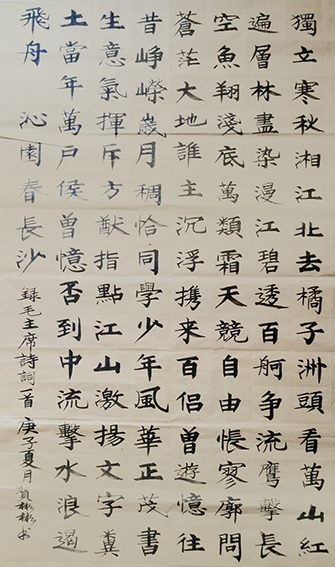 獨立寒秋湘江北去橘子洲頭看萬山紅
遍層林盡染漫江碧透百舸争流鷹擊長
空魚翔淺底萬類霜天競自由悵寥廓問
蒼茫大地誰主沉浮携来百侣曾遊憶往
昔崢嶸歲月稠恰同學少年風華正茂書
生意氣揮斥方猷指點江山激揚文字糞
土當年萬户侯曾憶否到中流擊水浪遏
飛舟 沁園春長沙
録毛主席詩詞一首 庚子夏月彬彬书